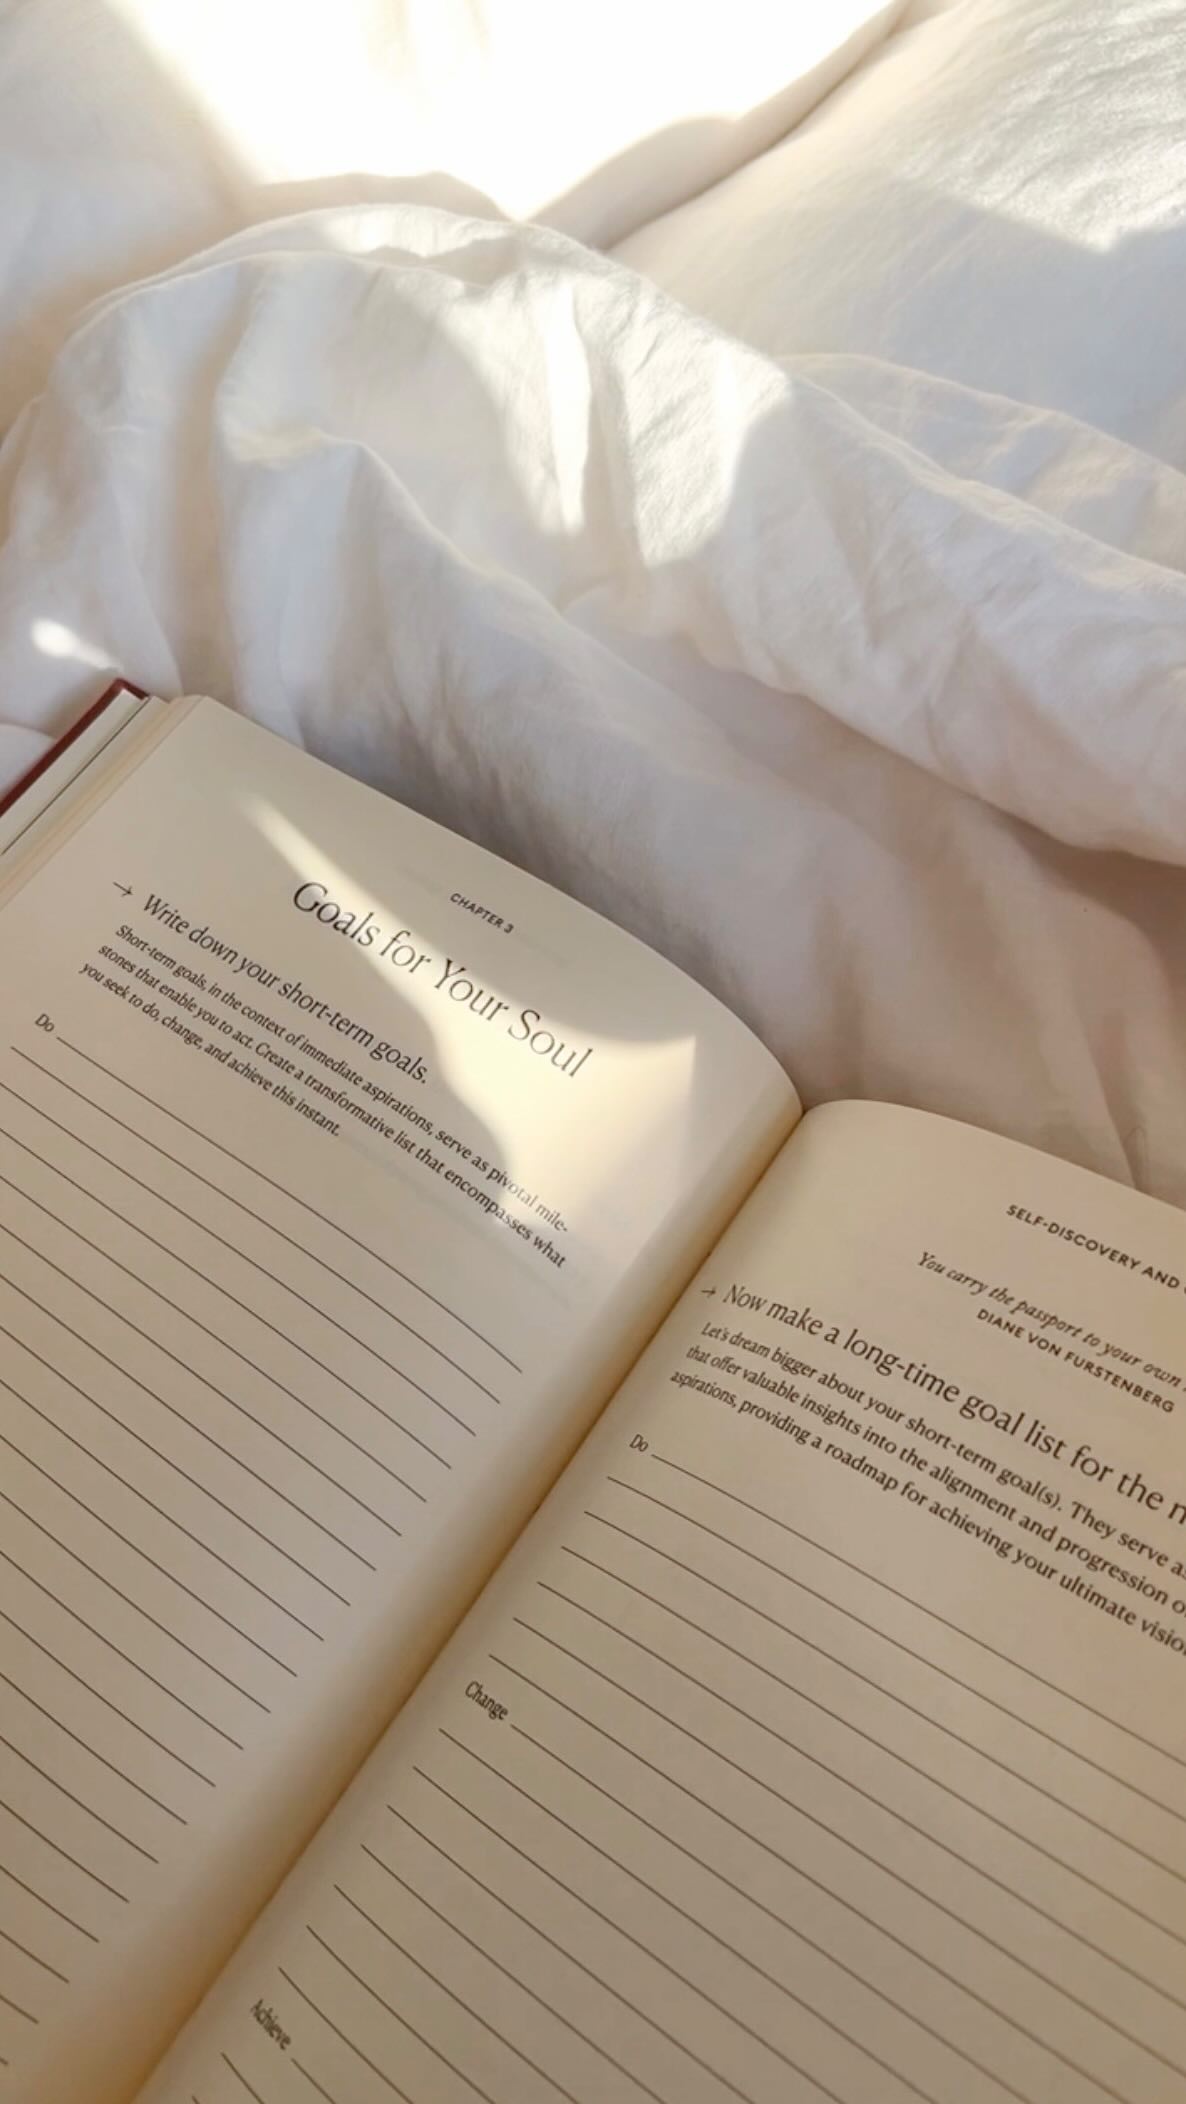 CHAPTER 3
Goals for Your Soul
→ Write down your short-term goals.
Short-term goals, in the context of immediate aspirations, serve as pivotal mile-
stones that enable you to act. Create a transformative list that encompasses what
you seek to do, change, and achieve this instant.
Do
SELF-DISCOVERY AND
You carry the passport to your own
DIANE VON FURSTENBERG
→ Now make a long-time goal list for the
Let's dream bigger about your short-term goal(s). They serve as
that offer valuable insights into the alignment and progression
aspirations, providing a roadmap for achieving your ultimate
Do
Change
Achieve